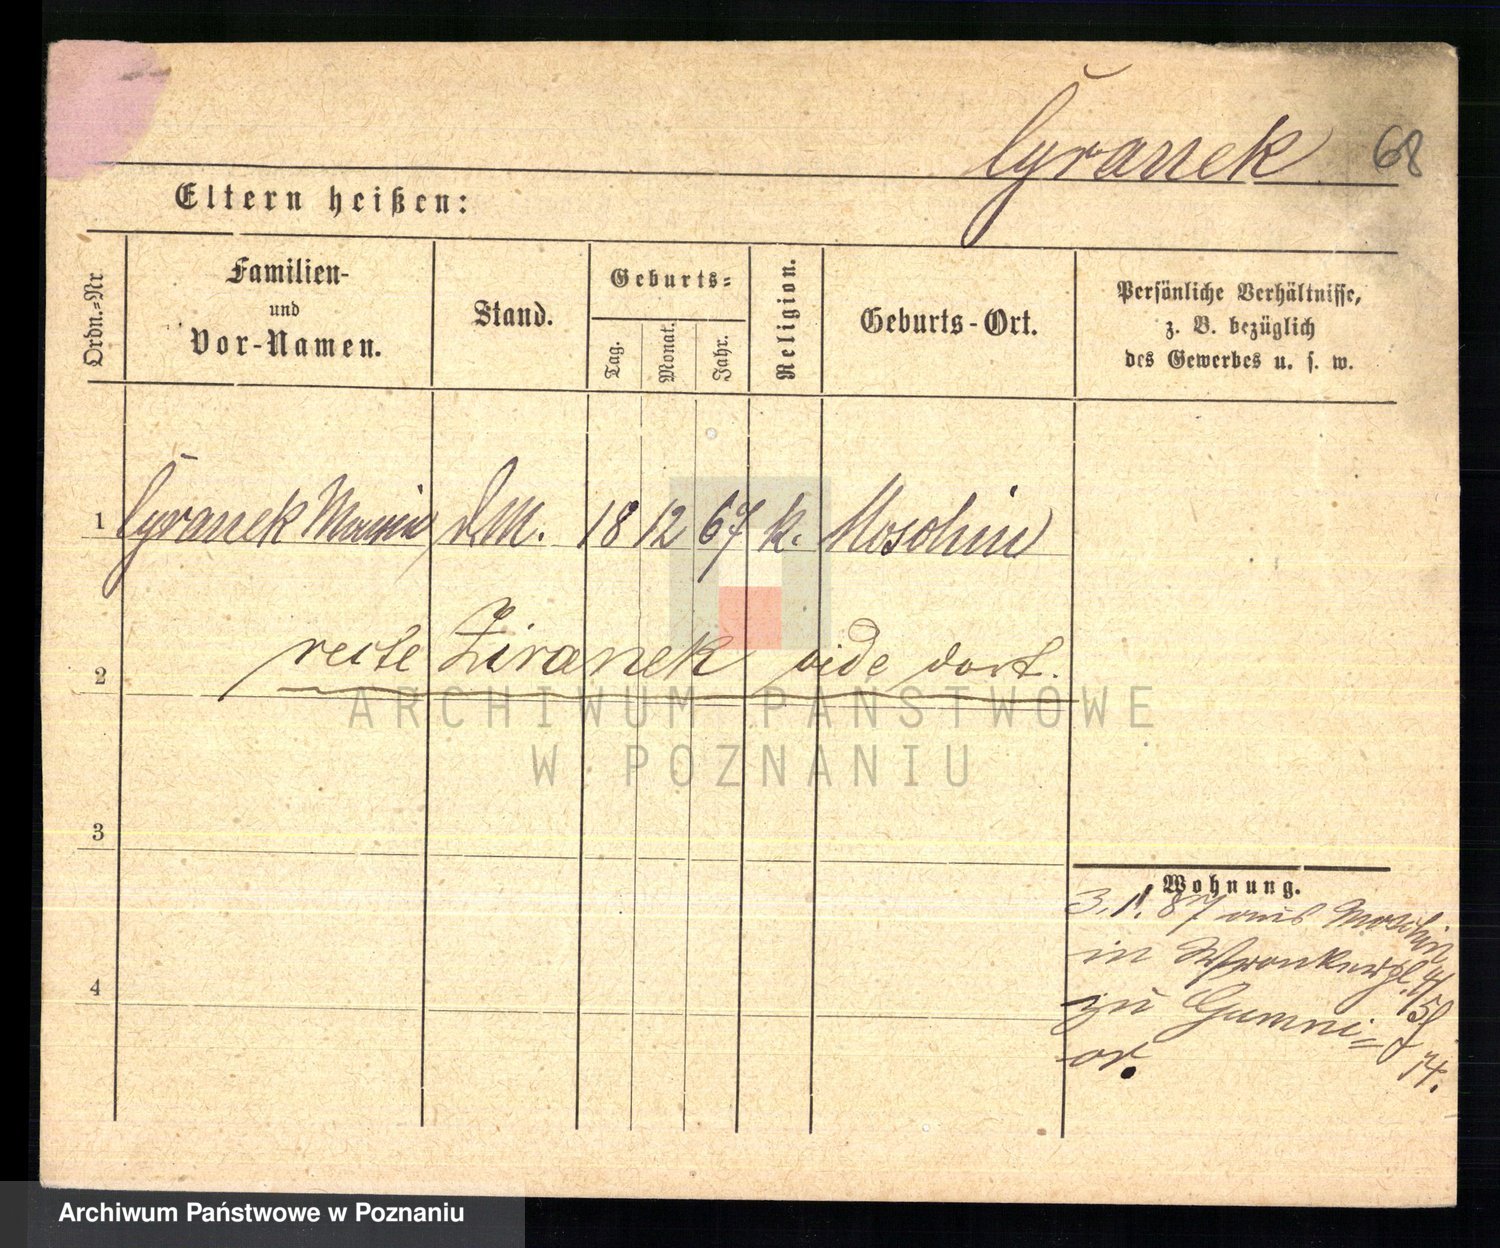 Cyranek 68
Eltern heißen:
Ordn.=Nr
Familien-
und
Vor-Namen.
Stand.
Geburts=
Tag.
Monat.
Jahr.
Religion.
Geburts-Ort.
Persönliche Verhältnisse,
z. B. bezüglich
des Gewerbes u. s. w.
1 Cyranek Maria d.M. 18 12 67 k. Moschin
2 recte Ziranek vide dort.
3
4
Wohnung.
3. 1. 87 aus Moschin
in Wronkerpl. 4/5
zu
ARCHIWUM PAŃSTWOWE
W POZNANIU
Archiwum Państwowe w Poznaniu